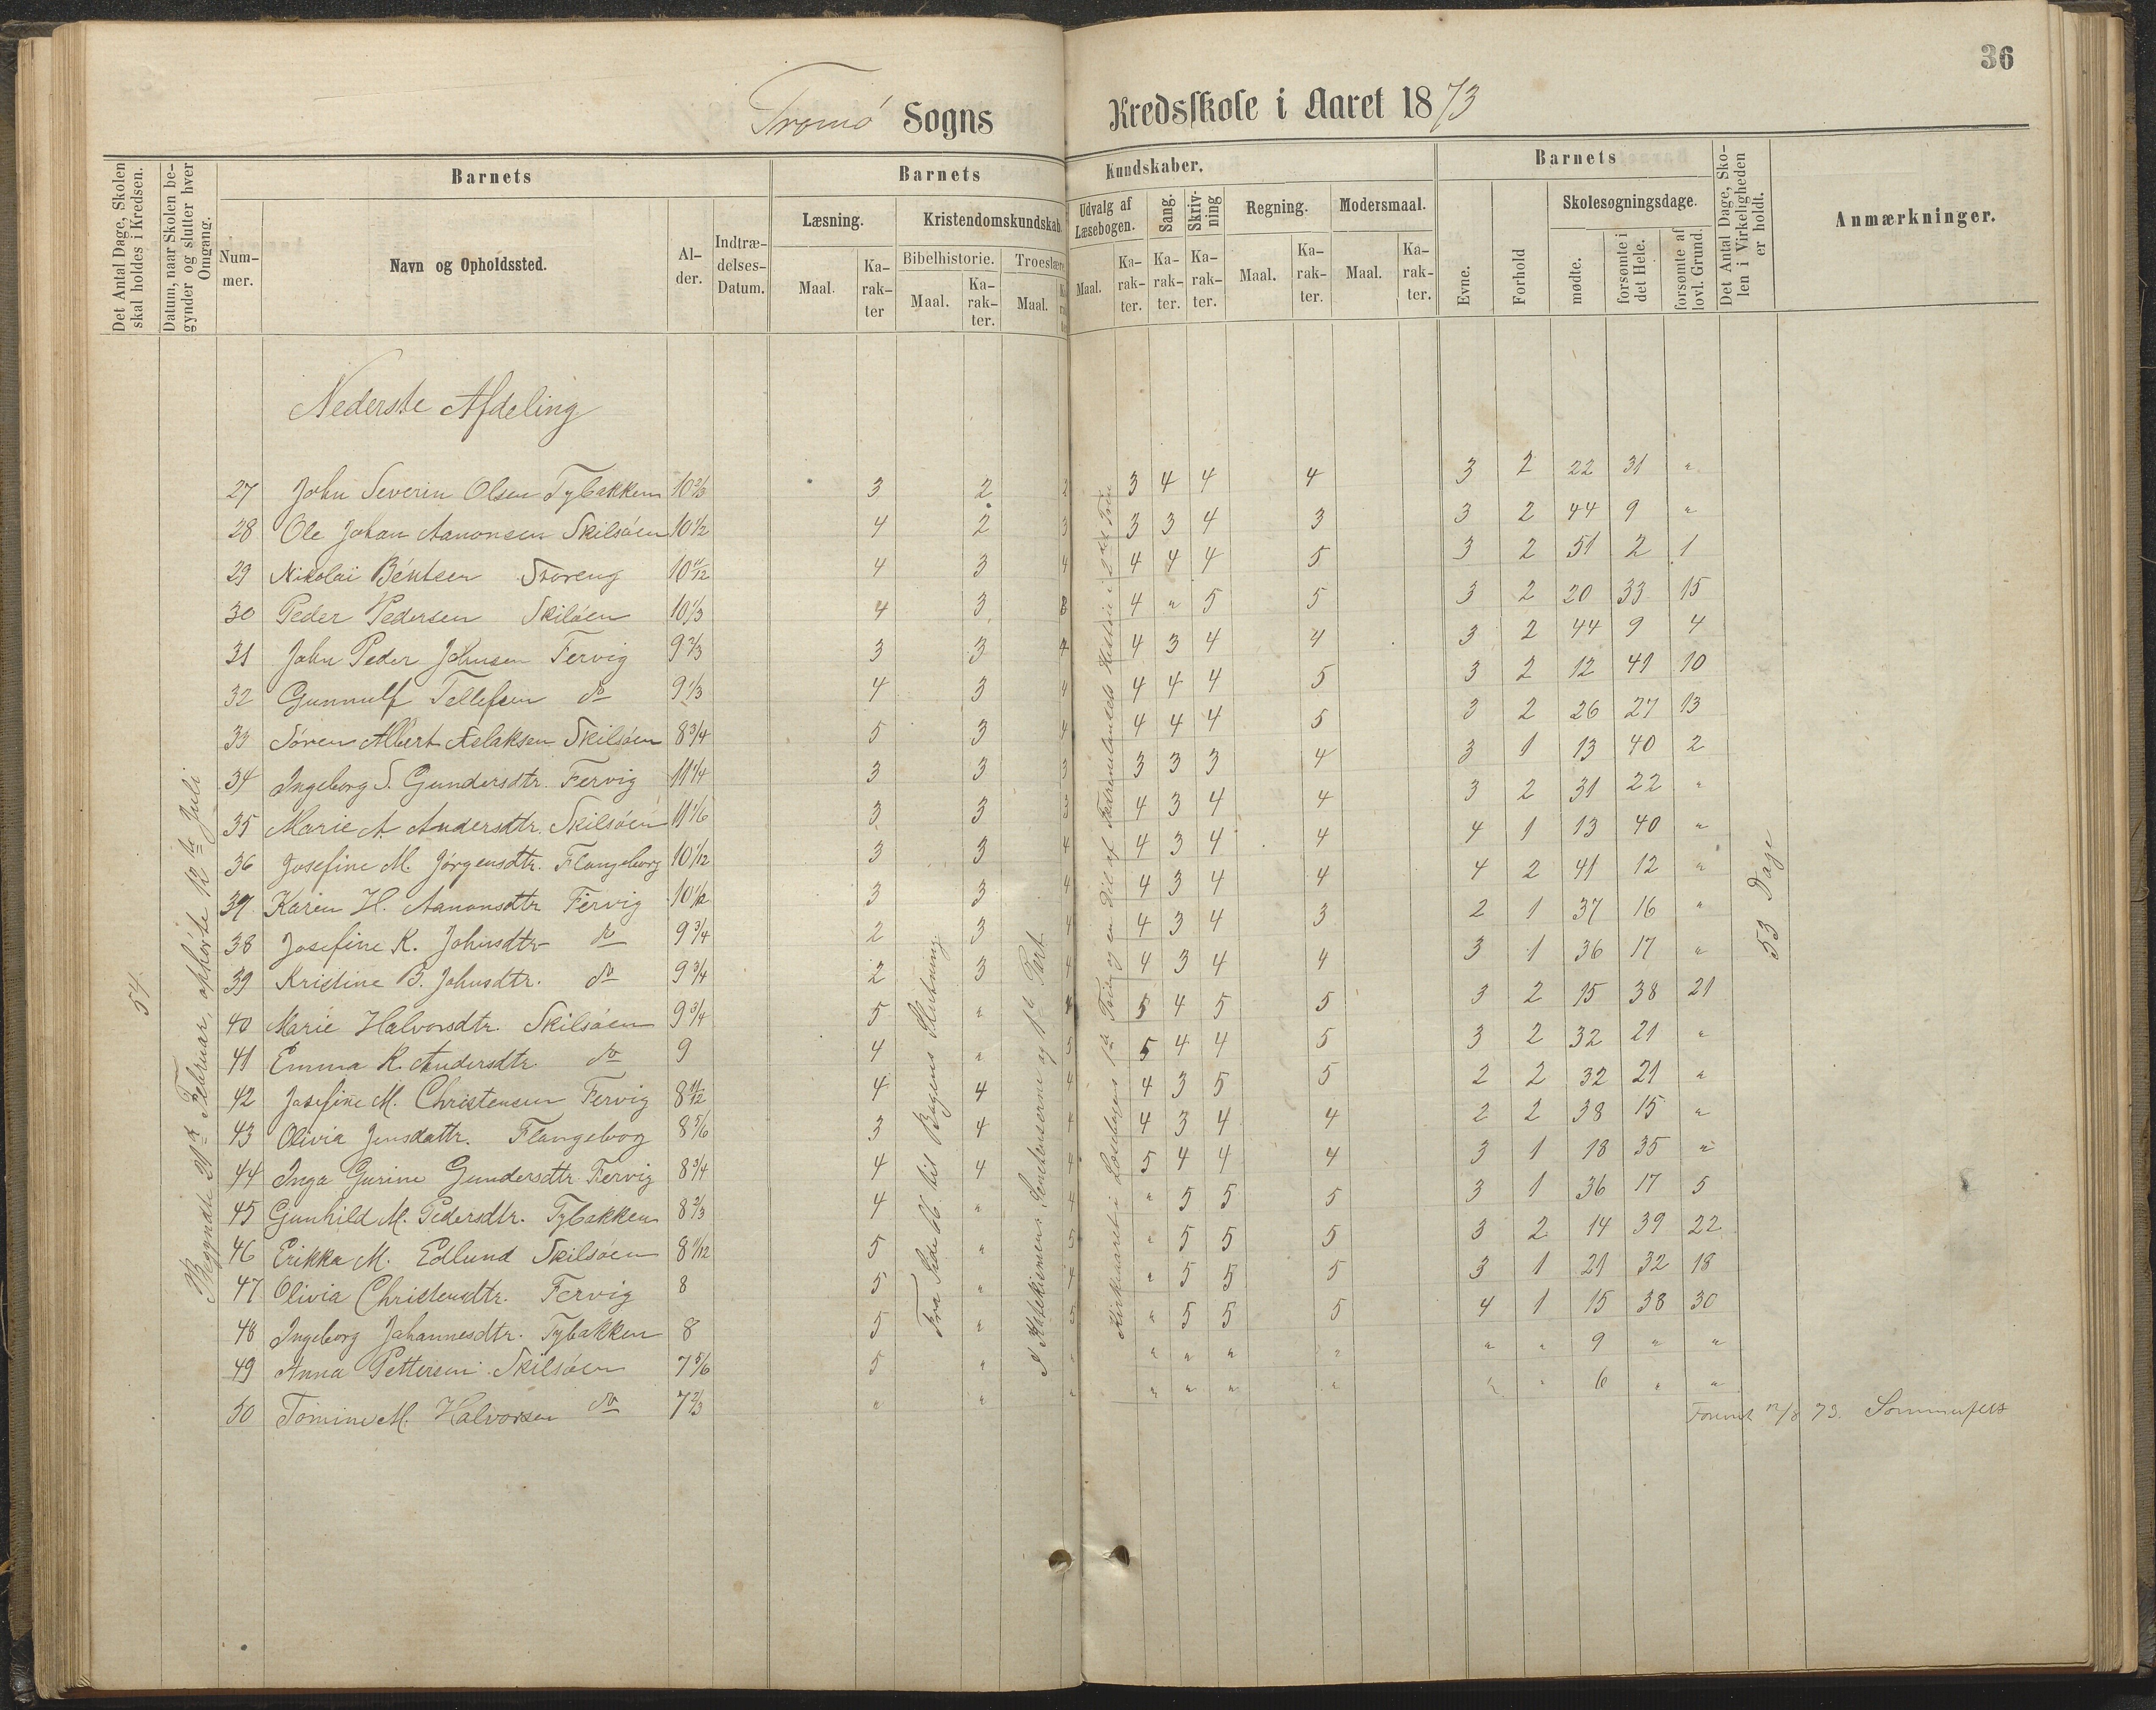 36
Tromö Sogns Kredsskole i Aaret 1873
Det Antal Dage, Skolen skal holdes i Kredsen.
Datum, naar Skolen begynder og slutter hver Omgang.
Barnets
Barnets Kundskaber.
Barnets
Det Antal Dage, Skolen i Virkeligheden er holdt.
Anmærkninger.
Nummer.
Navn og Opholdssted.
Alder.
Indtrædelses-Datum.
Læsning.
Kristendomskundskab.
Udvalg af Læsebogen.
Sang.
Skrivning
Regning.
Modersmaal.
Evne.
Forhold
Skolesøgningsdage.
Bibelhistorie.
Troeslære
Maal.
Karakter
Maal.
Karakter.
Maal.
Maal.
Karakter.
Karakter.
Karakter.
Maal.
Karakter.
Maal.
Karakter.
mødte.
forsømte i det Hele.
forsømte af lovl. Grund.
Nederste Afdeling
27 John Severin Olsen Tybakken 10 2/3 3 2 2 3 4 4 4 3 2 22 31 "
28 Ole Johan Aanonsen Skilsöen 10 1/2 4 2 3 3 3 4 3 3 2 44 9 "
29 Nikolai Bentsen 10 11/12 4 3 4 4 4 4 5 3 2 51 2 1
30 Peder Pedersen Skilöen 10 1/3 4 3 4 " 5 5 3 2 20 33 15
31 John Peder Johnsen Fervig 9 2/3 3 3 4 4 3 4 4 3 2 44 9 4
32 Gunnulf Tellefsen do 9 1/3 4 3 4 4 4 4 5 3 2 12 41 10
33 Sören Albert Aslaksen Skilsöen 8 3/4 5 3 4 4 4 4 5 3 2 26 27 13
34 Ingeborg S. Gundersdtr. Fervig 11 1/4 3 3 3 3 3 3 4 3 1 13 40 2
35 Marie A. Andersdtr. Skilsöen 11 1/6 3 3 3 4 3 4 4 3 2 31 22 "
36 Josefine M. Jörgensdtr. Flangeborg 10 1/12 3 3 4 4 3 4 4 4 1 13 40 "
37 Karen H. Aanonsdtr Fervig 10 1/12 3 3 4 4 3 4 4 4 2 41 12 "
38 Josefine K. Johnsdtr do 9 3/4 2 3 4 4 3 4 3 2 1 37 16 "
39 Kristine B. Johnsdtr. do 9 3/4 2 3 4 4 3 4 4 3 1 36 17 "
40 Marie Halvorsdtr. Skilsöen 9 3/4 5 " 4 5 4 5 5 3 2 15 38 21
41 Emma K. Andersdtr. do 9 4 " 5 5 4 4 5 3 2 32 21 "
42 Josefine M. Christensen Fervig 8 11/12 4 4 4 4 3 5 5 2 2 32 21 "
43 Olivia Jensdattr. Flangebog 8 5/6 3 4 4 4 3 4 4 2 2 38 15 "
44 Inga Gurine Gundersdtr Fervig 8 3/4 4 4 4 5 4 4 4 3 1 18 35 "
45 Gunhild M. Pedersdtr. Tybakken 8 2/3 4 " 4 " 5 5 5 3 1 36 17 5
46 Erikka M. Edlund Skilsöen 8 1/12 5 " 5 " 5 5 5 3 2 14 39 22
47 Olivia Christensdtr. Fervig 8 5 " 4 " 5 5 5 3 1 21 32 18
48 Ingeborg Johannesdtr. Tybakken 8 5 " 5 " 5 5 5 4 1 15 38 30
49 Anna Pettersen Skilsöen 7 5/6 5 " " " " " " " " 9 " "
50 Tomine M. Halvorsen do 7 2/3 " " " " " " " " " 6 " "
54
Begyndte 21de Februar, ophörte 12te Juli
Fra Side 66 til Bogens Slutning.
I Katekismen, Sentenserne og 1ste Part
Kirkeaaret i Læsebogens 1ste Trin og en Del af Fædrenelandets Historie i 2det Trin
53 Dage
12/8 73. Sommerfelt